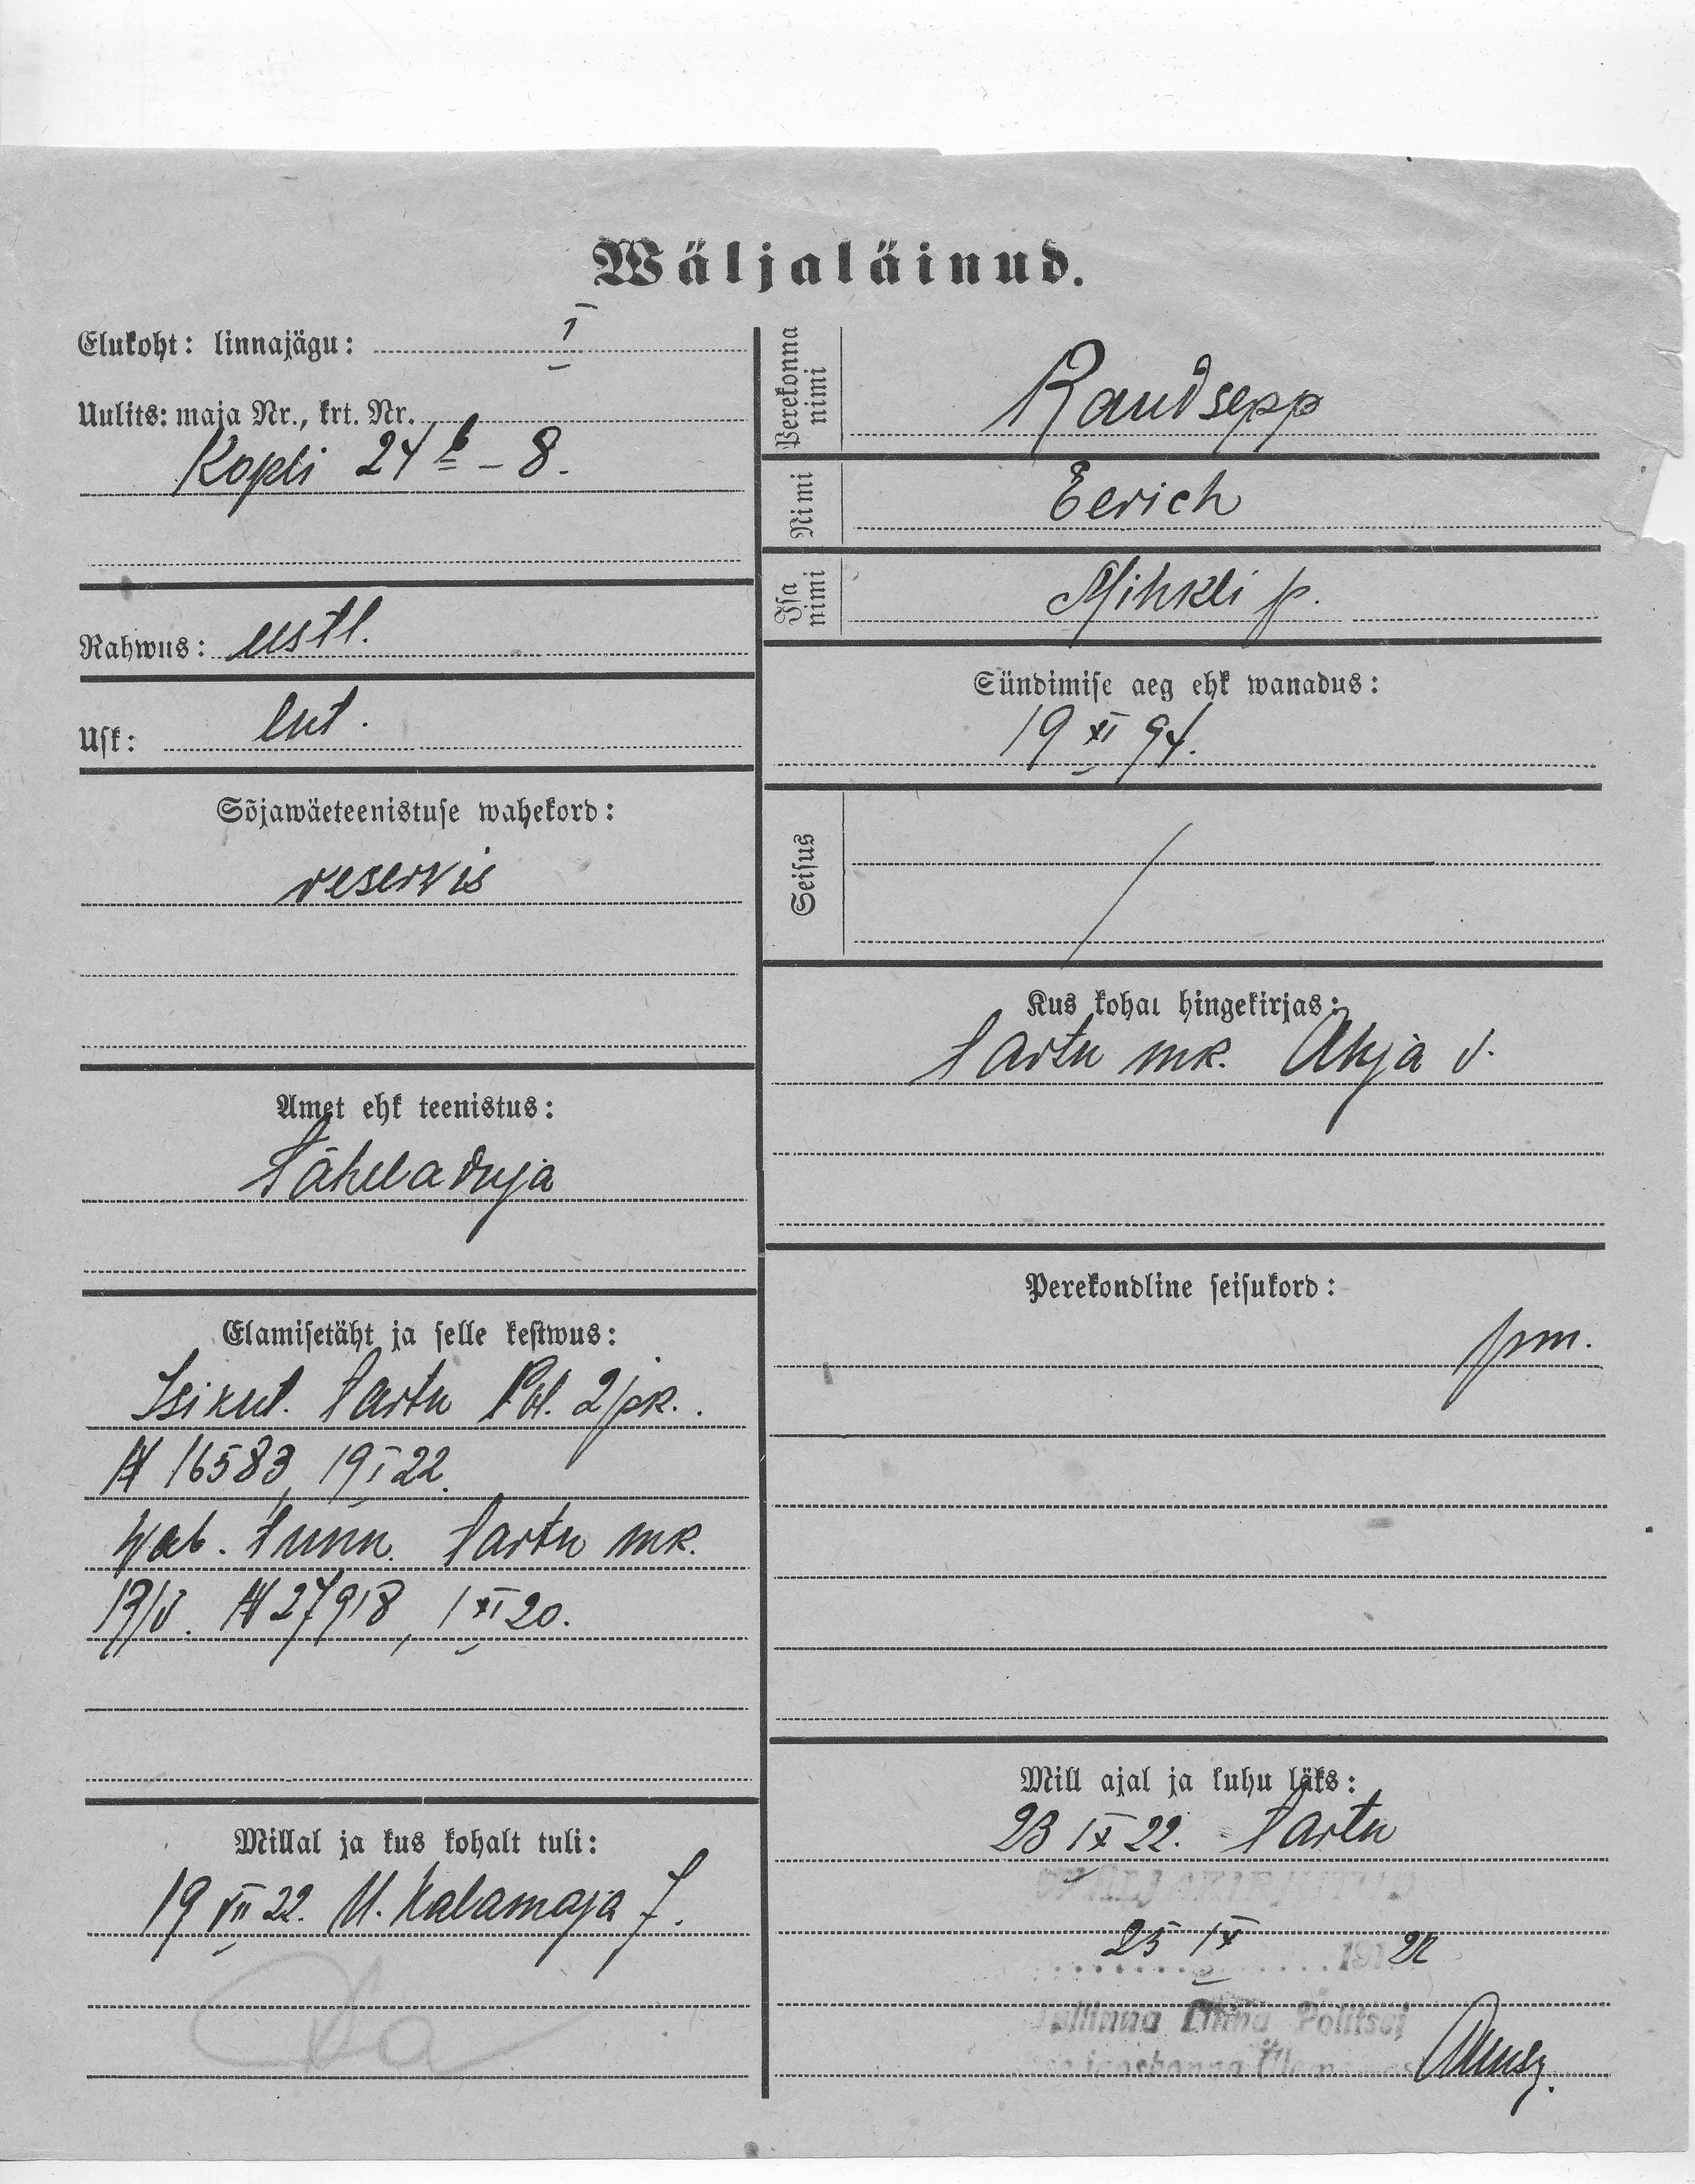 Wäljaläinud.
Elukoht: linnajägu: I
Uulits: maja Nr., krt. Nr.
Kopli 24 b – 8.
Rahwus: eestl.
Usk: lut.
Sõjawäeteenistuse wahekord:
reservis
Amet ehk teenistus:
Täheladuja
Elamisetäht ja selle kestwus:
Isikut. Tartu Pol. 2 jsk.
№ 16583, 19 I 22.
Wab. tunn. Tartu mk.
№ 27918, 1 XI 20.
Millal ja kus kohalt tuli:
19 VII 22. U. Kalamaja 7.
Perekonna nimi
Raudsepp
Nimi
Eerich
Isa nimi
Mihkli p.
Sündimise aeg ehk wanadus:
19 XI 94.
Seisus
Kus kohat hingekirjas:
Tartu mk. Ahja v.
Perekondline seisukord:
pm.
Mill ajal ja kuhu läks:
23 IX 22. Tartu
25 IX 191 22
Tallinna Linna Politsei
jaoskonna Ülem